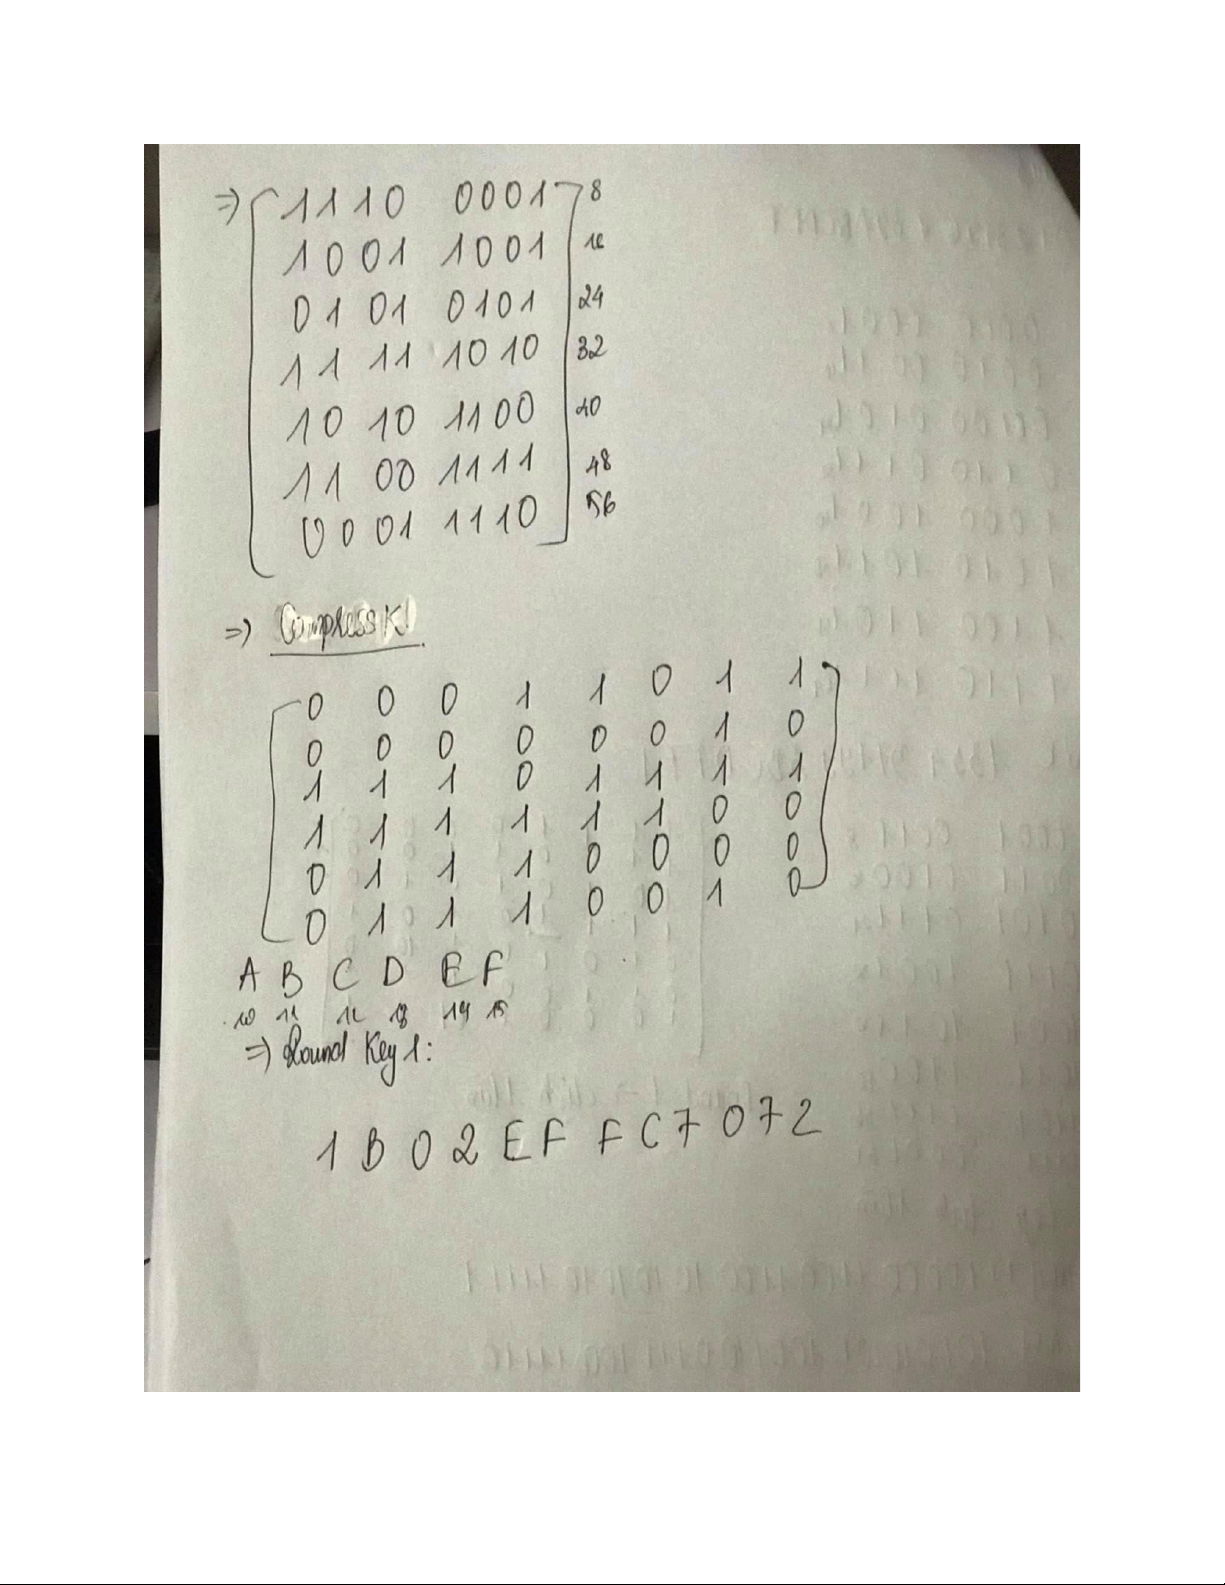 => 1110 0001 8
1001 1001 16
0101 0101 24
1111 1010 32
1010 1100 40
1100 1111 48
0001 1110 56
=> Compress K1
0 0 0 1 1 0 1 1
0 0 0 0 0 0 1 0
1 1 1 0 1 1 1 1
1 1 1 1 1 1 0 0
0 1 1 1 0 0 0 0
0 1 1 1 0 0 1 0
A B C D E F
10 11 12 13 14 15
=> Round Key 1:
1 B 0 2 E F F C 7 0 7 2